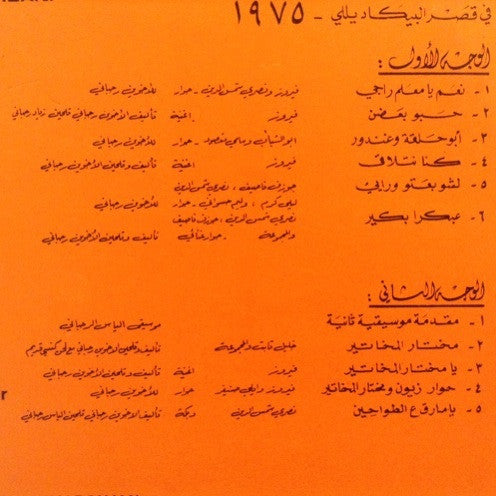 في قصر البيكاديللي - ١٩٧٥
الوجه الأول :
١ - نعم يا معلم راجي فيروز ونصري شمس الدين - حوار للأخوين رحباني
٢ - حبو بعضن فيروز اغنية تأليف الأخوين رحباني تلحين زياد رحباني
٣ - أبو حلقة وغندور حوار للأخوين رحباني
٤ - كنا نتلاقى فيروز اغنية تأليف وتلحين الأخوين رحباني
٥ - لشو بعتو ورايي جوزف ناصيف ، نصري شمس الدين
ليلى كرم ، وليم حسواني - حوار للأخوين رحباني
٦ - عبكرا بكير نصري شمس الدين ، جوزف ناصيف
والمجموعة - حوار غنائي تأليف وتلحين الأخوين رحباني
الوجه الثاني :
١ - مقدمة موسيقية ثانية موسيقى الياس الرحباني
٢ - مختار المخاتير والمجموعة تأليف وتلحين الأخوين رحباني
٣ - يا مختار المخاتير فيروز اغنية تأليف وتلحين الأخوين رحباني
٤ - حوار زيون ومختار المخاتير فيروز وايلي حوار للأخوين رحباني
٥ - يا مارق ع الطواحين نصري شمس الدين دبكة تأليف الأخوين رحباني تلحين الياس رحباني